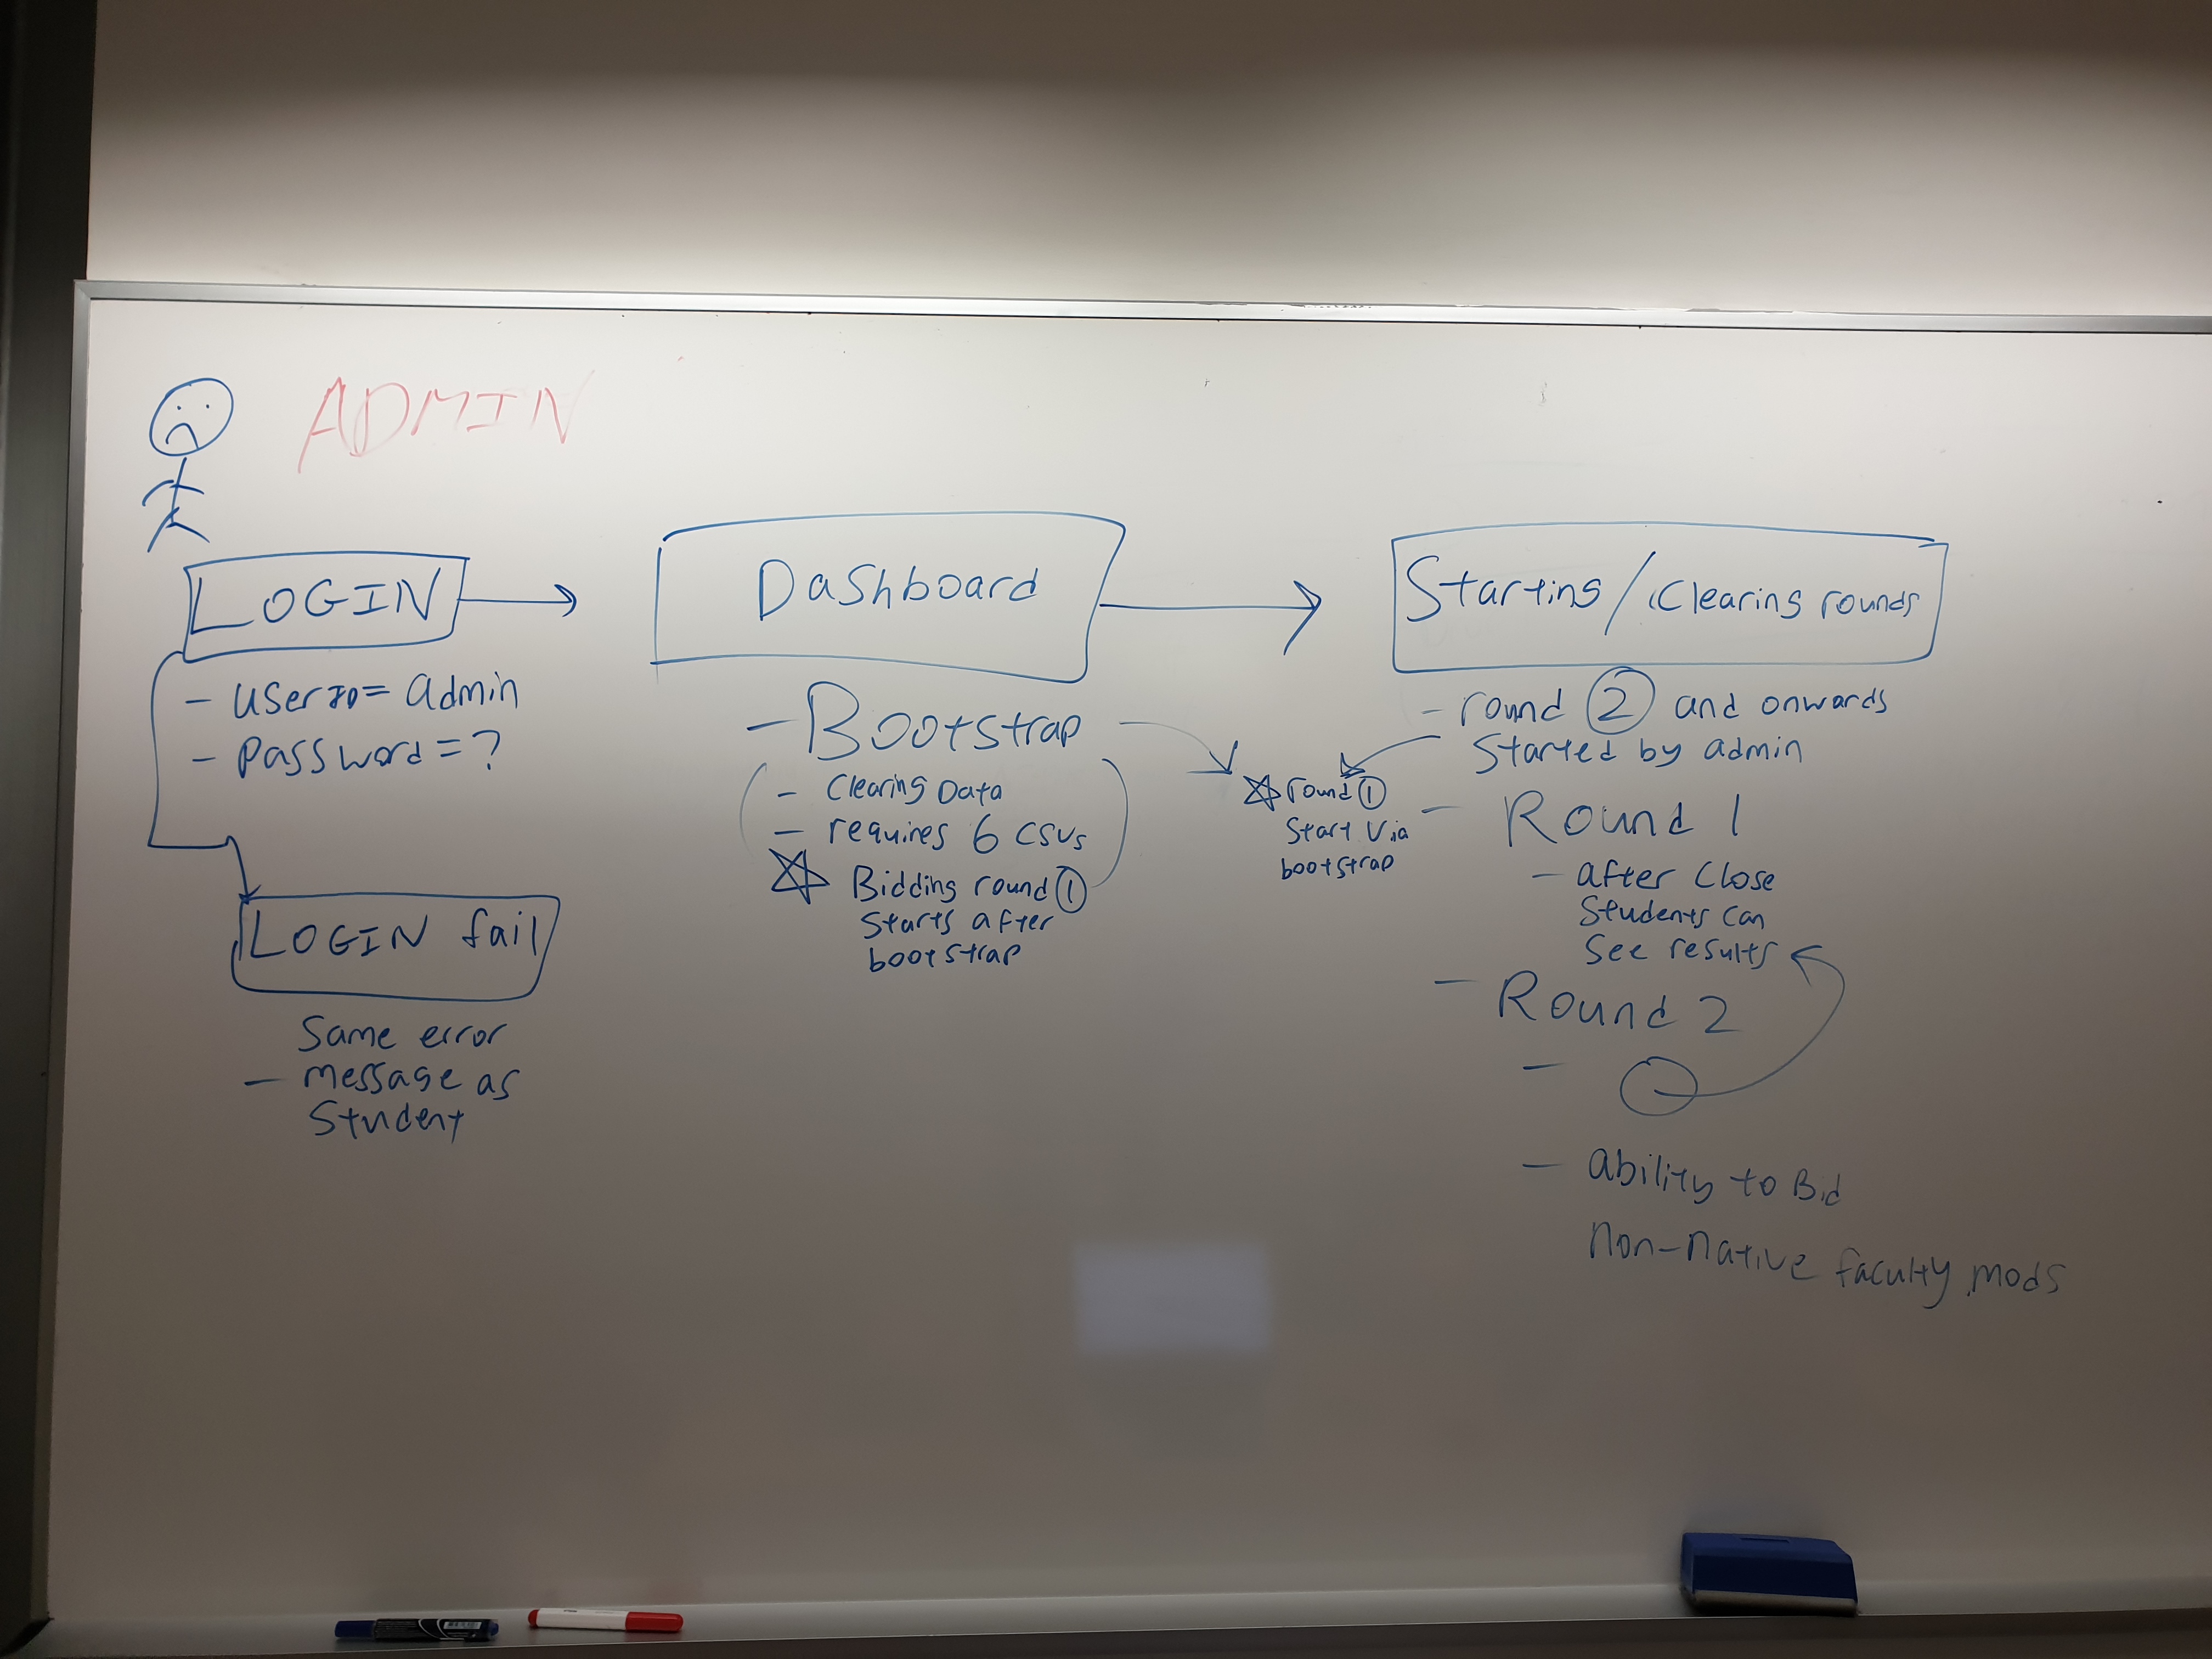 ADMIN
LOGIN
- userID = admin
- Password = ?
LOGIN fail
Same error
- message as
Student
Dashboard
- Bootstrap
- Clearing Data
- requires 6 CSVs
☆ Bidding round ①
Starts after
bootstrap
☆ round ①
Start Via
bootstrap
Starting / Clearing rounds
- round ② and onwards
Started by admin
- Round 1
- after Close
Students can
See results
- Round 2
-
- ability to Bid
non-native faculty mods